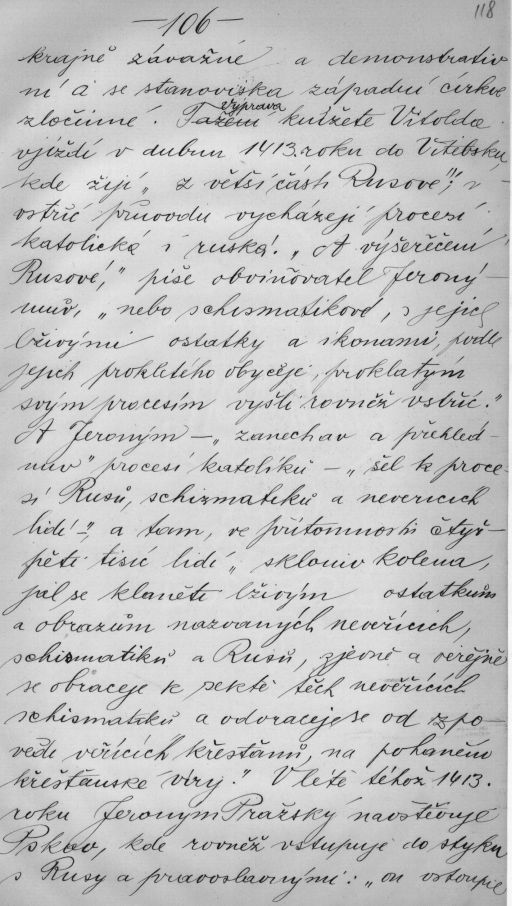 —106—
118
krajně závažné a demonstrativ
ní a se stanoviska západní církve
zločinné. Tažení výprava knížete Vitolda
vjíždí v dubnu 1413. roku do Vitebsku,
kde žijí „z větší části Rusové"; v
vstříc průvodu vycházejí procesí
katolická i ruská. „A výšeřečení
Rusové," píše obviňovatel Jerony-
mův, „nebo schismatikové, s jejich
lživými ostatky a ikonami, podle
jejich prokletého obyčeje, proklatým
svým procesím vyšli rovněž vstříc."
A Jeroným — „zanechav a přehléd-
nuv" procesí katolíků — „šel k proce-
sí Rusů, schizmatiků a neverících
lidí —", a tam, ve přítomnosti čtyř-
pěti tisíc lidí „skloniv kolena,
jal se klaněti lživým ostatkům
a obrazům nazvaných nevěřících,
schizmatiků a Rusů, zjevně a veřejně
se obraceje k sektě těch nevěřících
schismatiků a odvraceje se od zpo-
vědi věřících křesťanů, na pohanění
křesťanské víry." V létě téhož 1413.
roku Jeronym Pražský navštěvuje
Pskov, kde rovněž vstupuje do styku
s Rusy a pravoslavnými: „on vstoupil